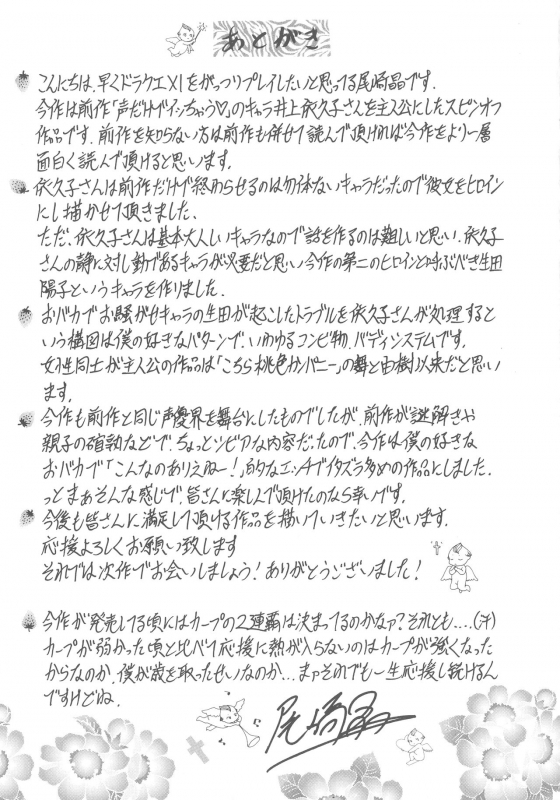 あとがき
こんにちは、早くドラクエXIをがっつりプレイしたいと思ってる尾崎晶です。
今作は前作「声だけでイッちゃう♡」のキャラ井上依久子さんを主人公にしたスピンオフ
作品です。前作を知らない方は前作も併せて読んで頂ければ今作をより一層
面白く読んで頂けると思います。
依久子さんは前作だけで終わらせるのは勿体ないキャラだったので彼女をヒロイン
にし描かせて頂きました、
ただ、依久子さんは基本大人しいキャラなので話を作るのは難しいと思い、依久子
さんの静に対し動であるキャラが必要だと思い今作の第二のヒロインと呼ぶべき生田
陽子というキャラを作りました。
おバカでお騒がせキャラの生田が起こしたトラブルを依久子さんが処理すると
いう構図は僕の好きなパターンで、いわゆるコンビ物、バディシステムです。
女性同士が主人公の作品は「こちら桃色カンパニー」の舞と由樹以来だと思い
ます。
今作も前作と同じ声優界を舞台にしたものでしたが、前作が謎解きや
親子の確執などで、ちょっとシビアな内容だったので、今作は僕の好きな
おバカで「こんなのありえねー!」的なエッチでイタズラ多めの作品にしました、
っとまぁそんな感じで、皆さんに楽しんで頂けたのなら幸いです。
今後も皆さんに満足して頂ける作品を描いていきたいと思います。
応援よろしくお願い致します
それでは次作でお会いしましょう!ありがとうございました!
今作が発売してる頃にはカープの2連覇は決まってるのかなァ?それとも....(汗)
カープが弱かった頃と比べて応援に熱が入らないのはカープが強くなった
からなのか、僕が歳を取ったせいなのか...まァそれでも一生応援し続けるん
ですけどね、
尾崎晶